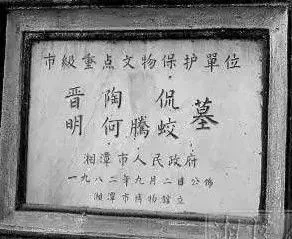 市級重点文物保护單位
晋 陶 侃 墓
明 何騰蛟
湘潭市人民政府
一九八二年九月二日公佈
湘潭市博物館立